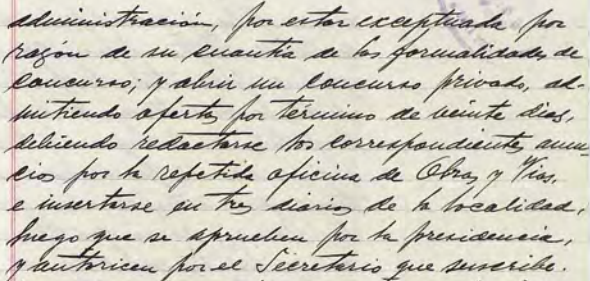 administración, por estar exceptuada por
razón de su cuantía de las formalidades de
concurso; y abrir un concurso privado, ad-
mitiendo ofertas por término de veinte dias,
debiendo redactarse los correspondientes anun-
cios por la repetida oficina de Obras y Vias,
e insertarse en tres diarios de la localidad,
luego que se aprueben por la presidencia,
y autoricen por el Secretario que suscribe.